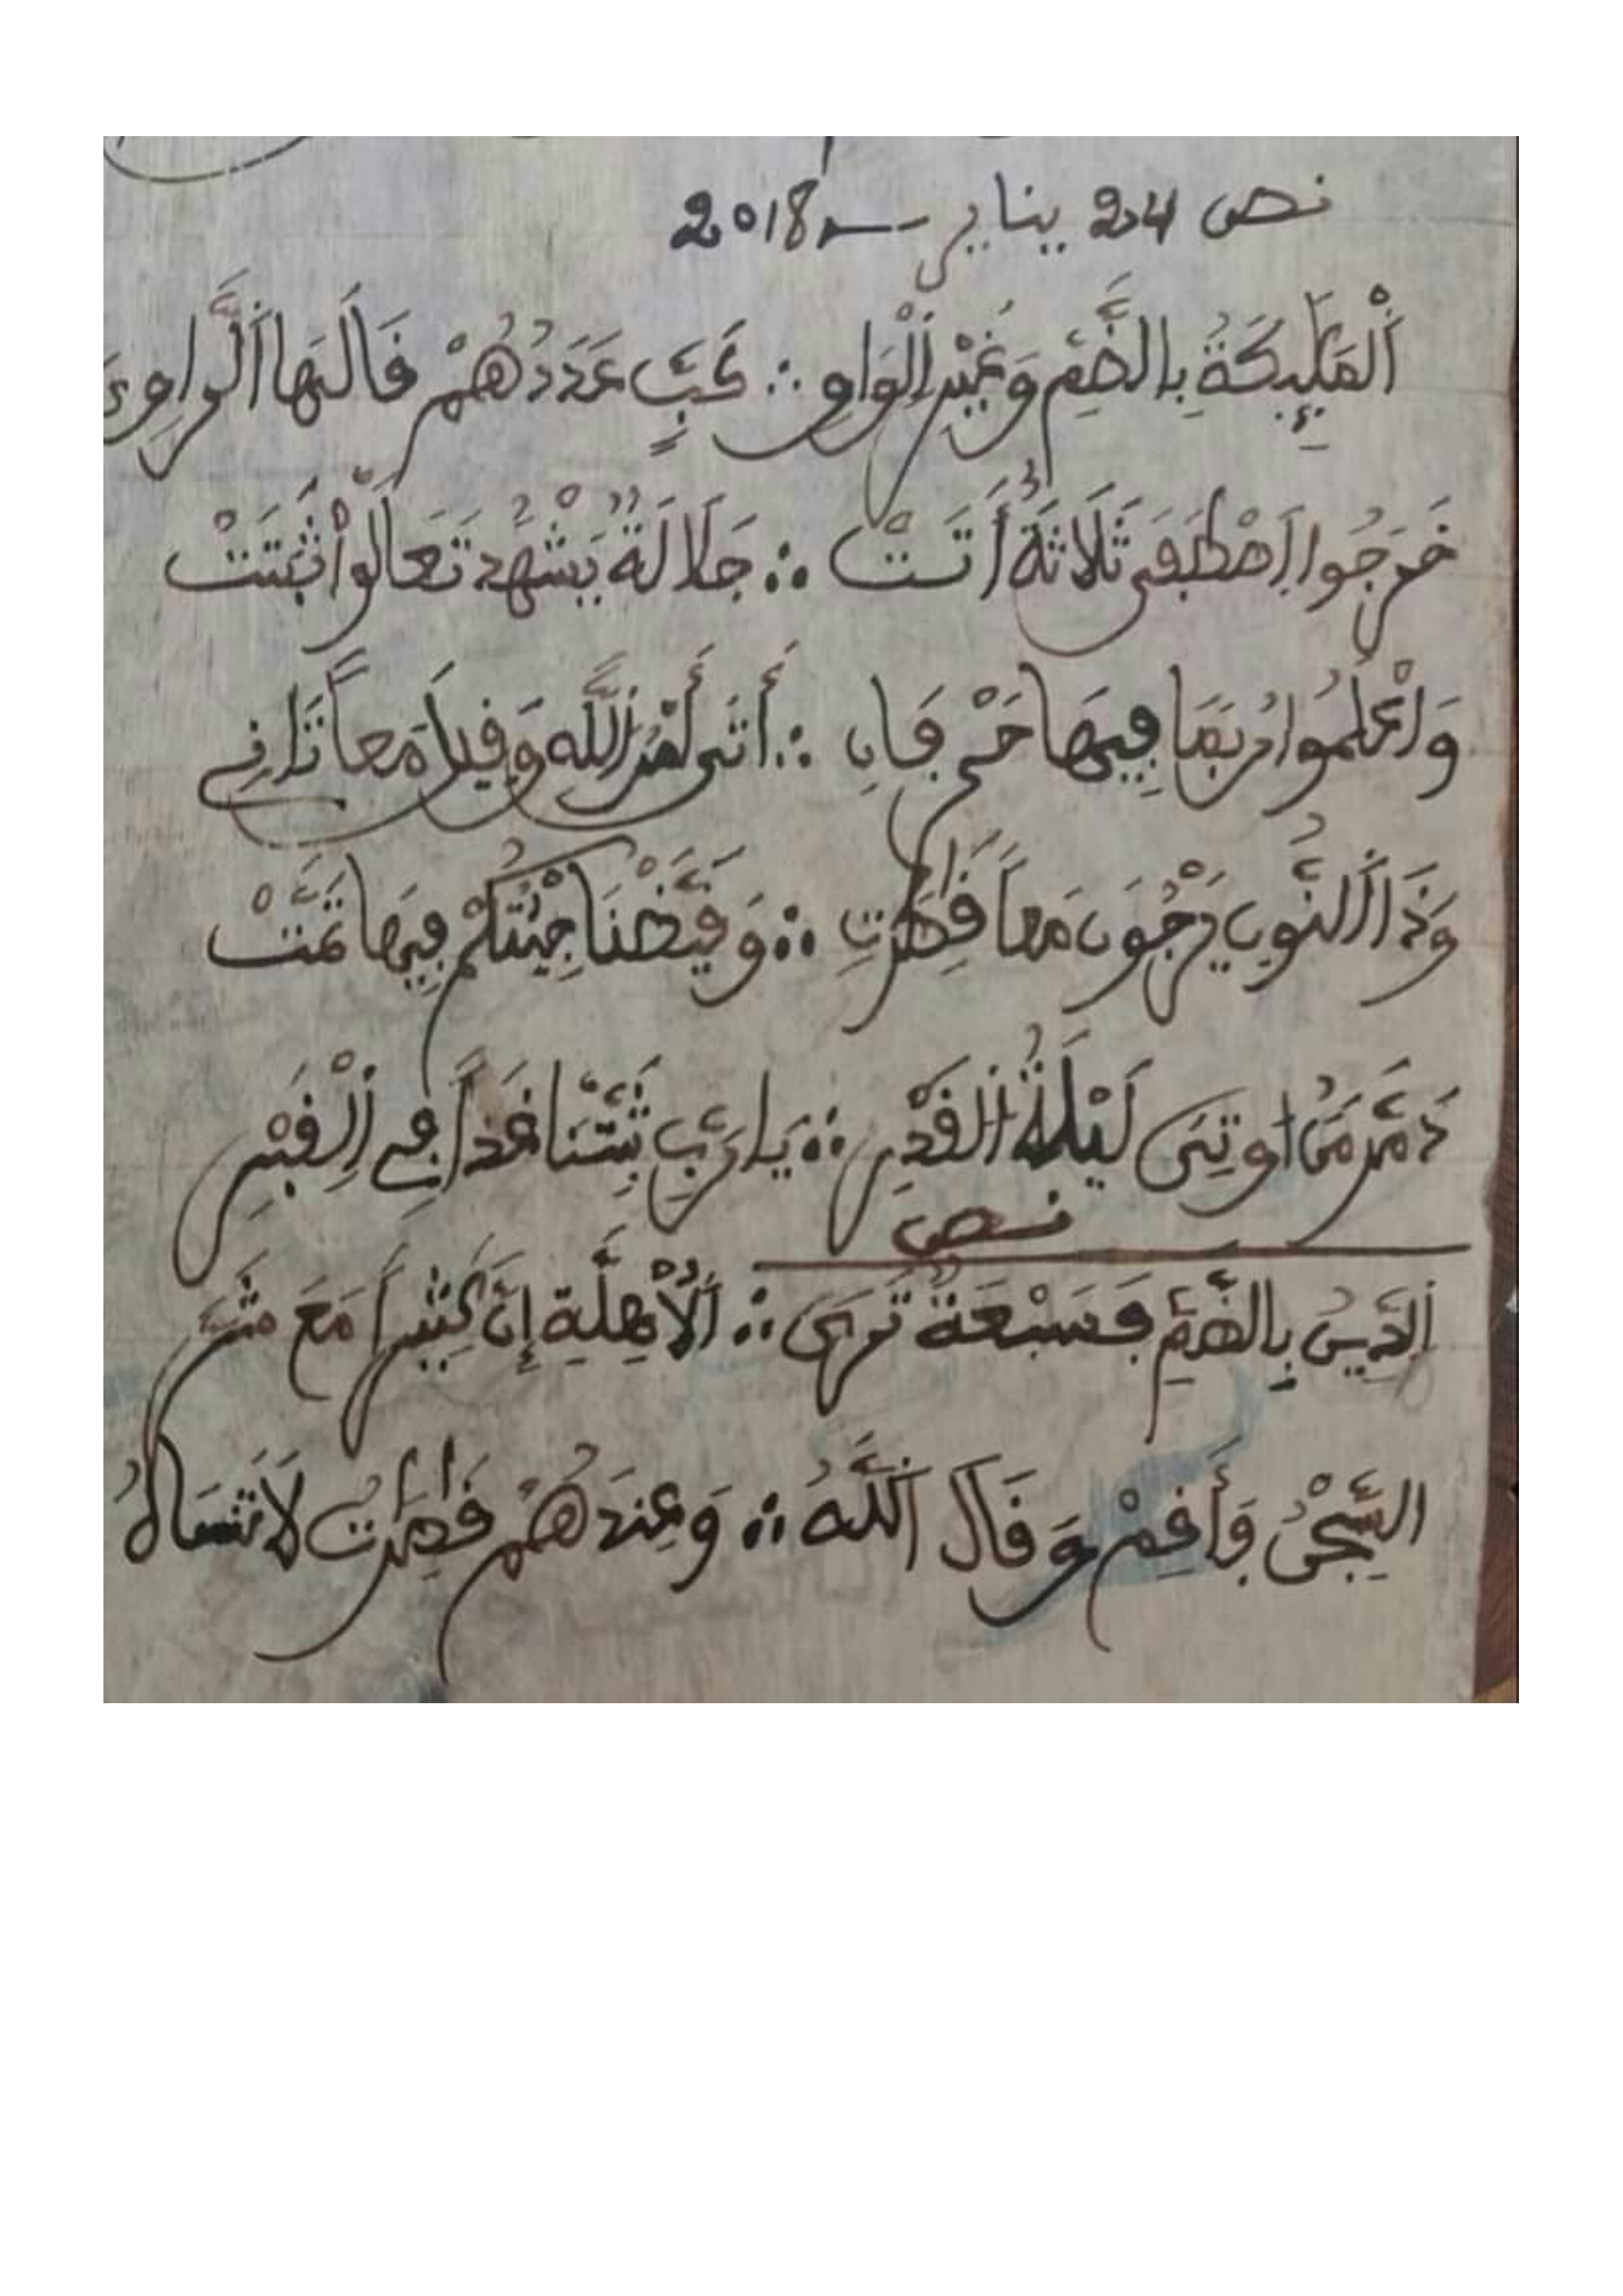 نص 24 يناير 2018
اَلْمَلَٰٓئِكَةُ بِالضَّمِّ وَغَيْرِ اِلْوَاوِ ∴ كَبٍّ عَدَدُهُمْ قَالَهَا اَلرَّاوِے
خَرَجُوا اِصْطَفَى ثَلَاثَةٌ أَتَتْ ∴ جَلَالَةٌ يَشْهَدُ تَعَالَوْاْ ثَبَتَتْ
وَاعْلَمُوا رُبَمَا فِيهَا حَمْ قَافِ ∴ أَتَى أَمْرُ اللَّه وَقِيلَ مَعاً
وَذَا اَلنُّونِ يَرْجُونَ مَعاً قَٰصِرَٰتِ ∴ وَقَيَّضْنَا جِئْتُكُمْ فِيهَا تَمَّتْ
دَمَّرَ لَيْلَةُ اُلْقَدْرِ ∴ يَا رَبِّ ثَبِّتْنَا غَداً فِے اِلْقَبْرِ
نص
اَلدِّينُ بِالضَّمِّ فَسَبْعَةٌ تَرَى ∴ اَلْأَهِلَّةِ إِنَّ كَثِيراً مَعَ
السِّجْنُ فَأَقِمْ وَقَالَ اَللَّهُ ∴ وَعِندَهُمْ قَٰصِرَٰتُ لَا تَنسَاهُ